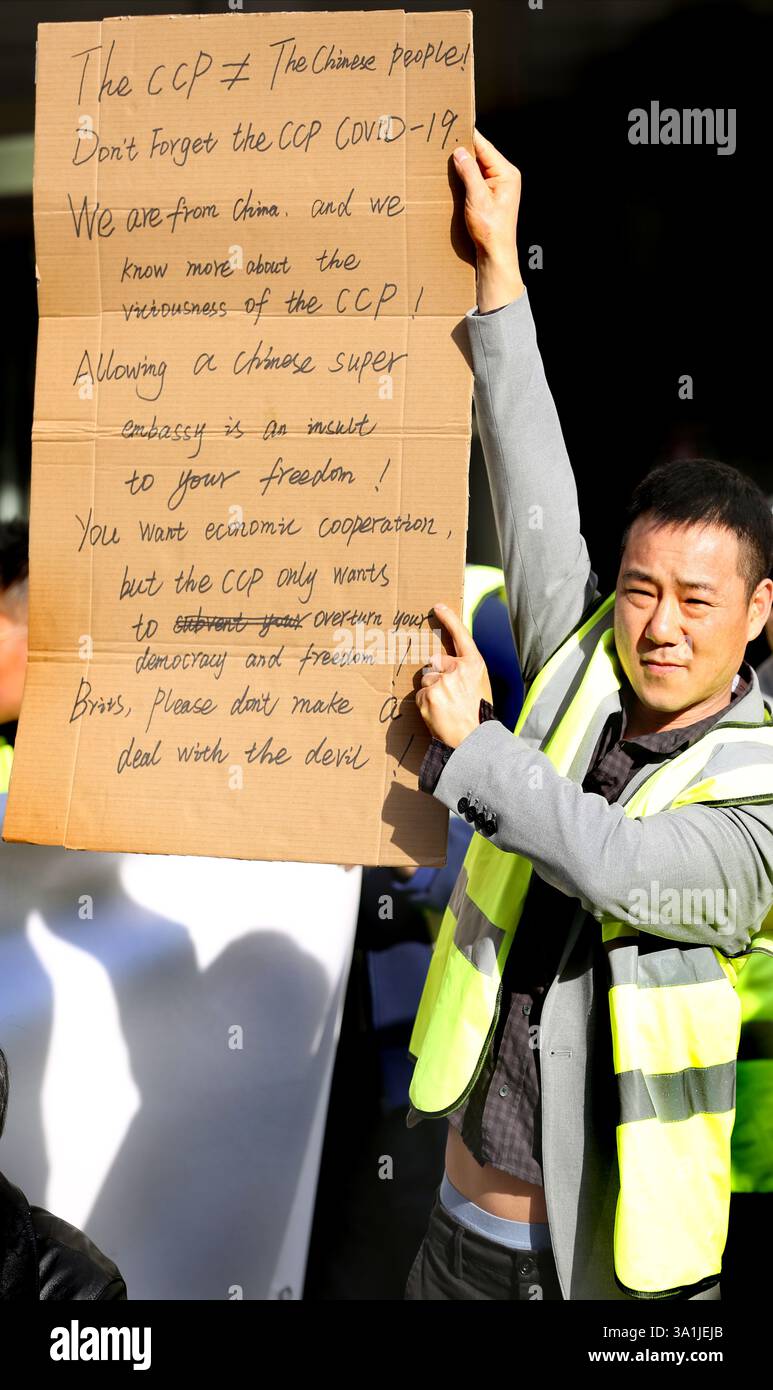 The CCP ≠ The Chinese people!
Don't Forget the CCP COVID-19.
We are from China. and we
know more about the
viciousness of the CCP!
Allowing a Chinese super
embassy is an insult
to your freedom!
You want economic cooperation,
but the CCP only wants
to subvent your overturn your
democracy and freedom!
Brits, please don't make a
deal with the devil!
alamy
alamy
Image ID: 3A1JEJB
www.alamy.com